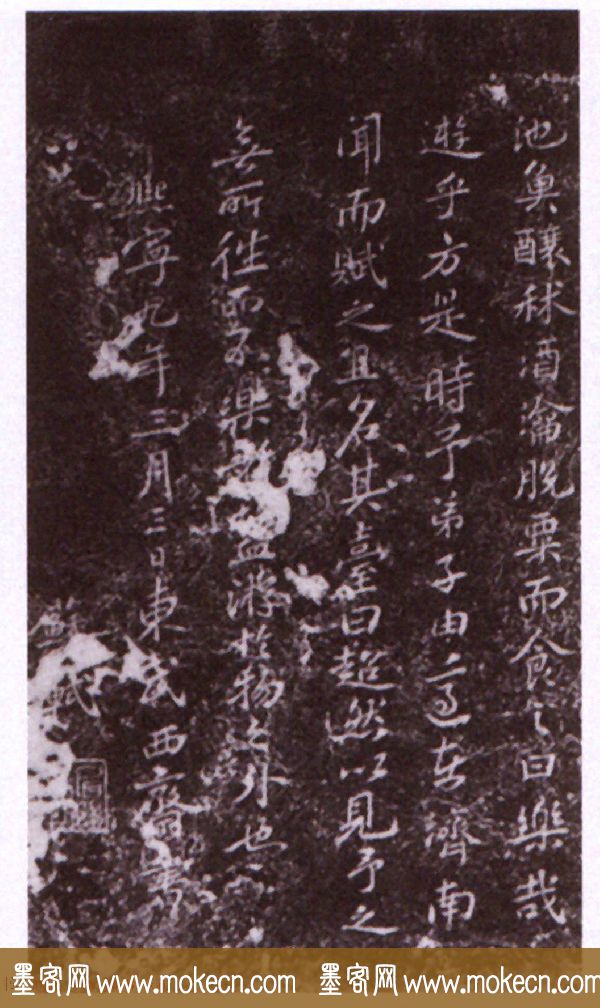 池魚釀秫酒瀹脫粟而食之曰樂哉
遊乎方是時予弟子由適在濟南
聞而賦之且名其臺曰超然以見予之
無所往而不樂者蓋游於物之外也
熙寧九年三月三日東武西齋書
蘇軾
墨客网 www.mokecn.com 墨客网 www.mokecn.com